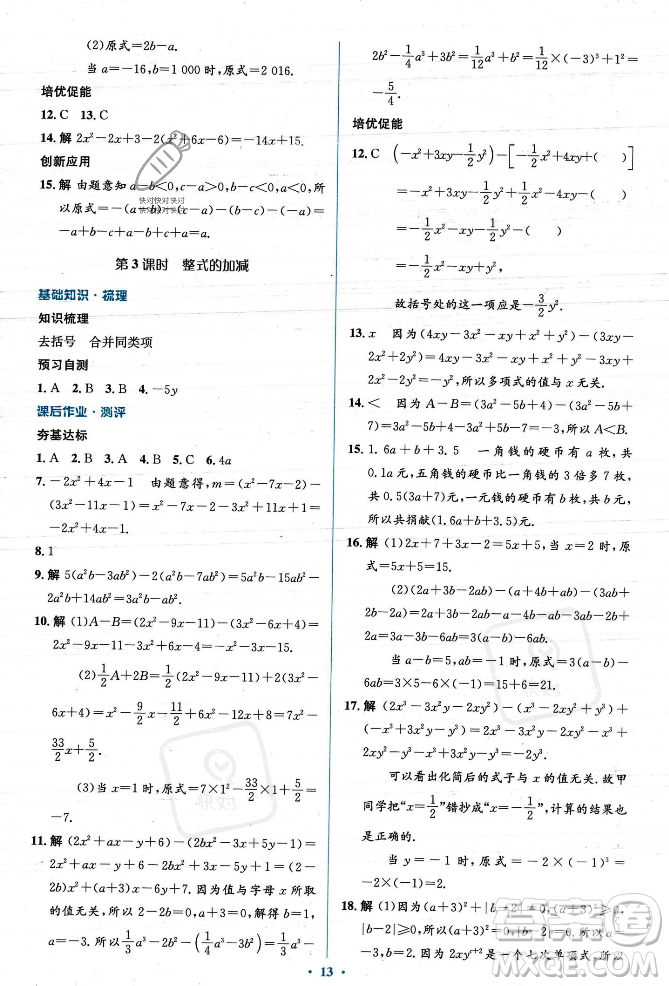 (2)原式=2b-a.
当 a=-16,b=1 000 时,原式=2 016.
培优促能
12. C  13. C
14. 解  2x²-2x+3-2(x²+6x-6)=-14x+15.
创新应用
15. 解  由题意知 a-b<0,c-a>0,b-c<0,a<0,所
以原式=-(a-b)-(c-a)-(b-c)-(-a)=
-a+b-c+a-b+c+a=a.
第 3 课时  整式的加减
基础知识·梳理
知识梳理
去括号  合并同类项
预习自测
1. A  2. B  3. A  4. -5y
课后作业·测评
夯基达标
1. A  2. B  3. A  4. B  5. C  6. 4a
7. -2x²+4x-1  由题意得,m=(x²-7x-2)-
(3x²-11x-1)=x²-7x-2-3x²+11x+1=
-2x²+4x-1.
8. 1
9. 解  5(a²b-3ab²)-2(a²b-7ab²)=5a²b-15ab²-
2a²b+14ab²=3a²b-ab².
10. 解  (1)A-B=(2x²-9x-11)-(3x²-6x+4)=
2x²-9x-11-3x²+6x-4=-x²-3x-15.
(2)½A+2B=½(2x²-9x-11)+2(3x²-
6x+4)=x²-9/2x-11/2+6x²-12x+8=7x²-
33/2x+5/2.
(3)当 x=1 时,原式=7×1²-33/2×1+5/2=
-7.
11. 解  (2x²+ax-y+6)-(2bx²-3x+5y-1)=
2x²+ax-y+6-2bx²+3x-5y+1=(2-2b)x²+
(a+3)x-6y+7. 因为代数式的值与字母 x 所取
的值无关,所以 2-2b=0,a+3=0. 解得 b=1,
a=-3. 当 a=-3,b=1 时,原式=⅓a³-2b²-¼a³+
2b²-¼a³+3b²=1/12a³+3b²=1/12×(-3)³+3×1²=
-5/4.
培优促能
12. C  (-x²+3xy-½y²)-[-½x²+4xy+(  )]
=-x²+3xy-½y²+½x²-4xy-(  )
=-½x²-xy-½y²-(  )
=-½x²-xy+y².
故括号处的这一项应是-3/2y².
13. x  因为(4xy-3x²-xy+x²+y²)-(3xy-
2x²+2y²)=4xy-3x²-xy+x²+y²-3xy+
2x²-2y²=-y²,所以多项式的值与 x 无关.
14. <  因为 A-B=(3a²-5b+4)-(3a²-5b+
7)=3a²-5b+4-3a²+5b-7=-3<0,所以 A<B.
15. 1.6a+b+3.5  一角钱的硬币有 a 枚,共
0.1a元,五角钱的硬币比一角钱的多 7 枚,
共 0.5(3a+7)元,一元钱的硬币有 b 枚,共 b 元,
所以共捐献(1.6a+b+3.5)元.
16. 解  (1)2x+7+3x-2=5x+5,当 x=2 时,原
式=5x+5=15.
(2)(2a+3b-2ab)-(a+4b+ab)-(3ab-
2a+2b)=2a+3b-2ab-a-4b-ab-3ab+
2a-2b=3a-3b-6ab.
当 a-b=5,ab=-1 时,原式=3(a-b)-
6ab=3×5-6×(-1)=15+6=21.
17. 解  (2x³-3x²y-2xy²)-(x³-2xy²+y³)+
(-x³+3x²y-y³)=2x³-3x²y-2xy²-x³+
2xy²-y³-x³+3x²y-y³=-2y³.
可以看出化简后的式子与 x 的值无关. 故甲
同学把“x=½”错抄成“x=-½”,计算的结果也
是正确的.
当 y=-1 时,原式=-2×(-1)³=-2×
(-1)=2.
18. 解  (1)因为(a+3)²+|b-2|=0,(a+3)²≥0,
|b-2|≥0,所以(a+3)²=0,|b-2|=0,所以
a=-3,b=2. 因为2xyᶜ⁺²是一个七次单项式,所以
13